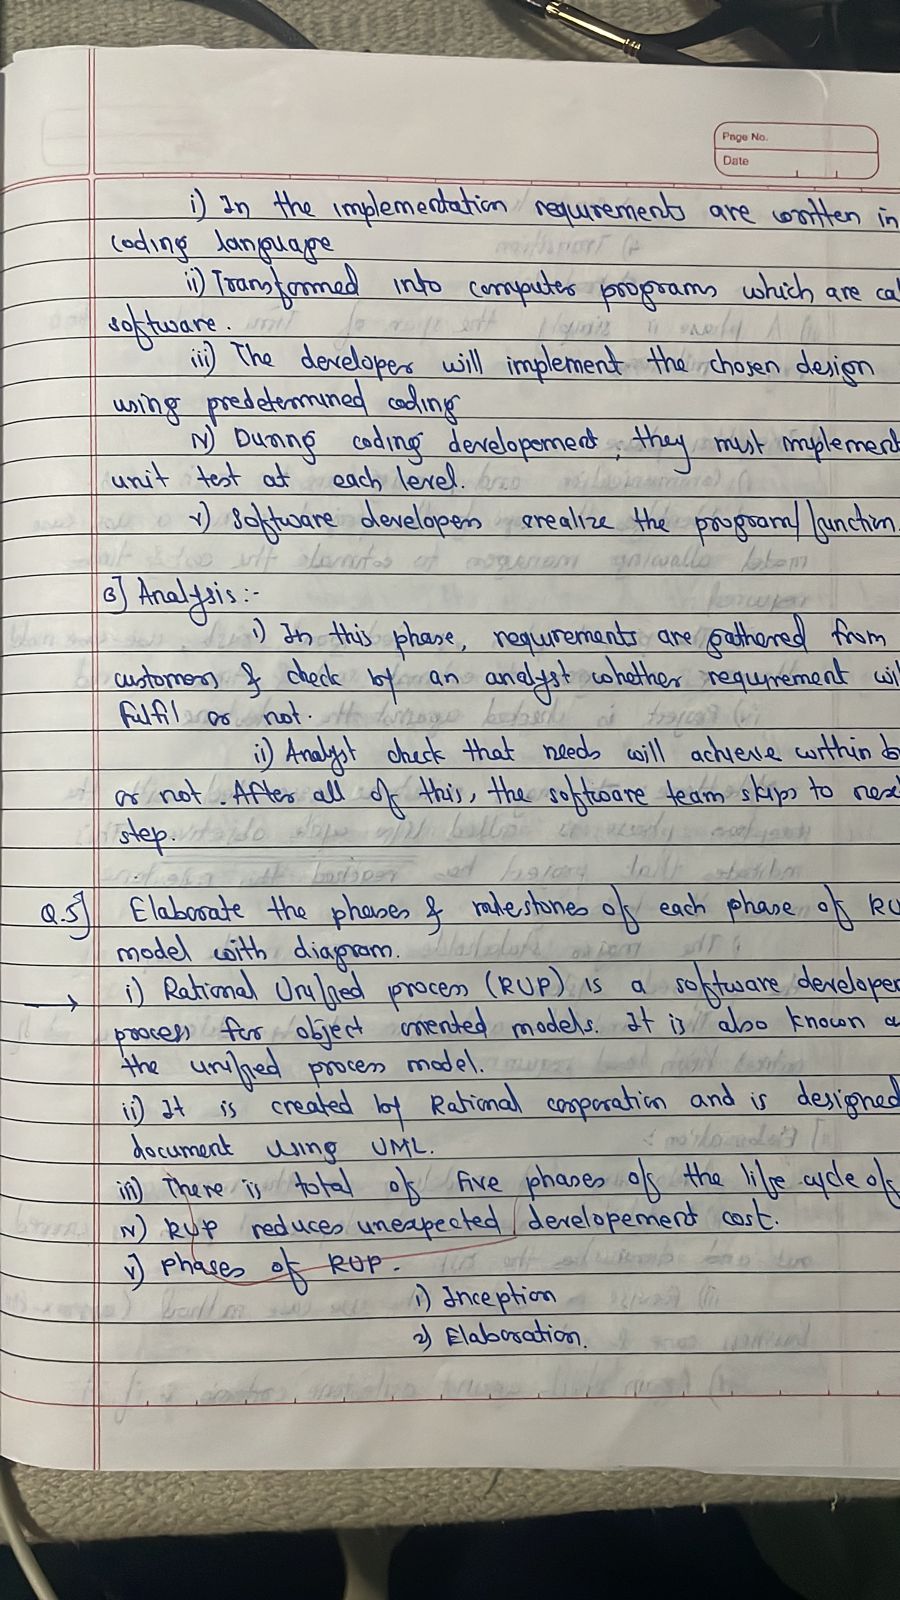 Page No.
Date
i) In the implementation requirements are written in
coding language
ii) Transformed into computer programs which are ca
software.
iii) The developer will implement the chosen design
using predetermined coding
iv) During coding developement, they must implement
unit test at each level.
v) Software developers realize the program/function.
3] Analysis:-
i) In this phase, requrements are gathered from
customers & check by an analyst whether requirement wil
fulfil or not.
ii) Analyst check that needs will achieve within b
or not. After all of this, the software team skips to nex
step.
Q.5] Elaborate the phases & milestones of each phase of RU
model with diagram.
→ i) Rational Unified process (RUP) is a software developer
process for object oriented models. It is also known a
the unified process model.
ii) It is created by Rational corporation and is designed
document using UML.
iii) There is total of five phases of the life cycle of
iv) RUP reduces unexpected developement cost.
v) Phases of RUP.
1) Inception
2) Elaboration.